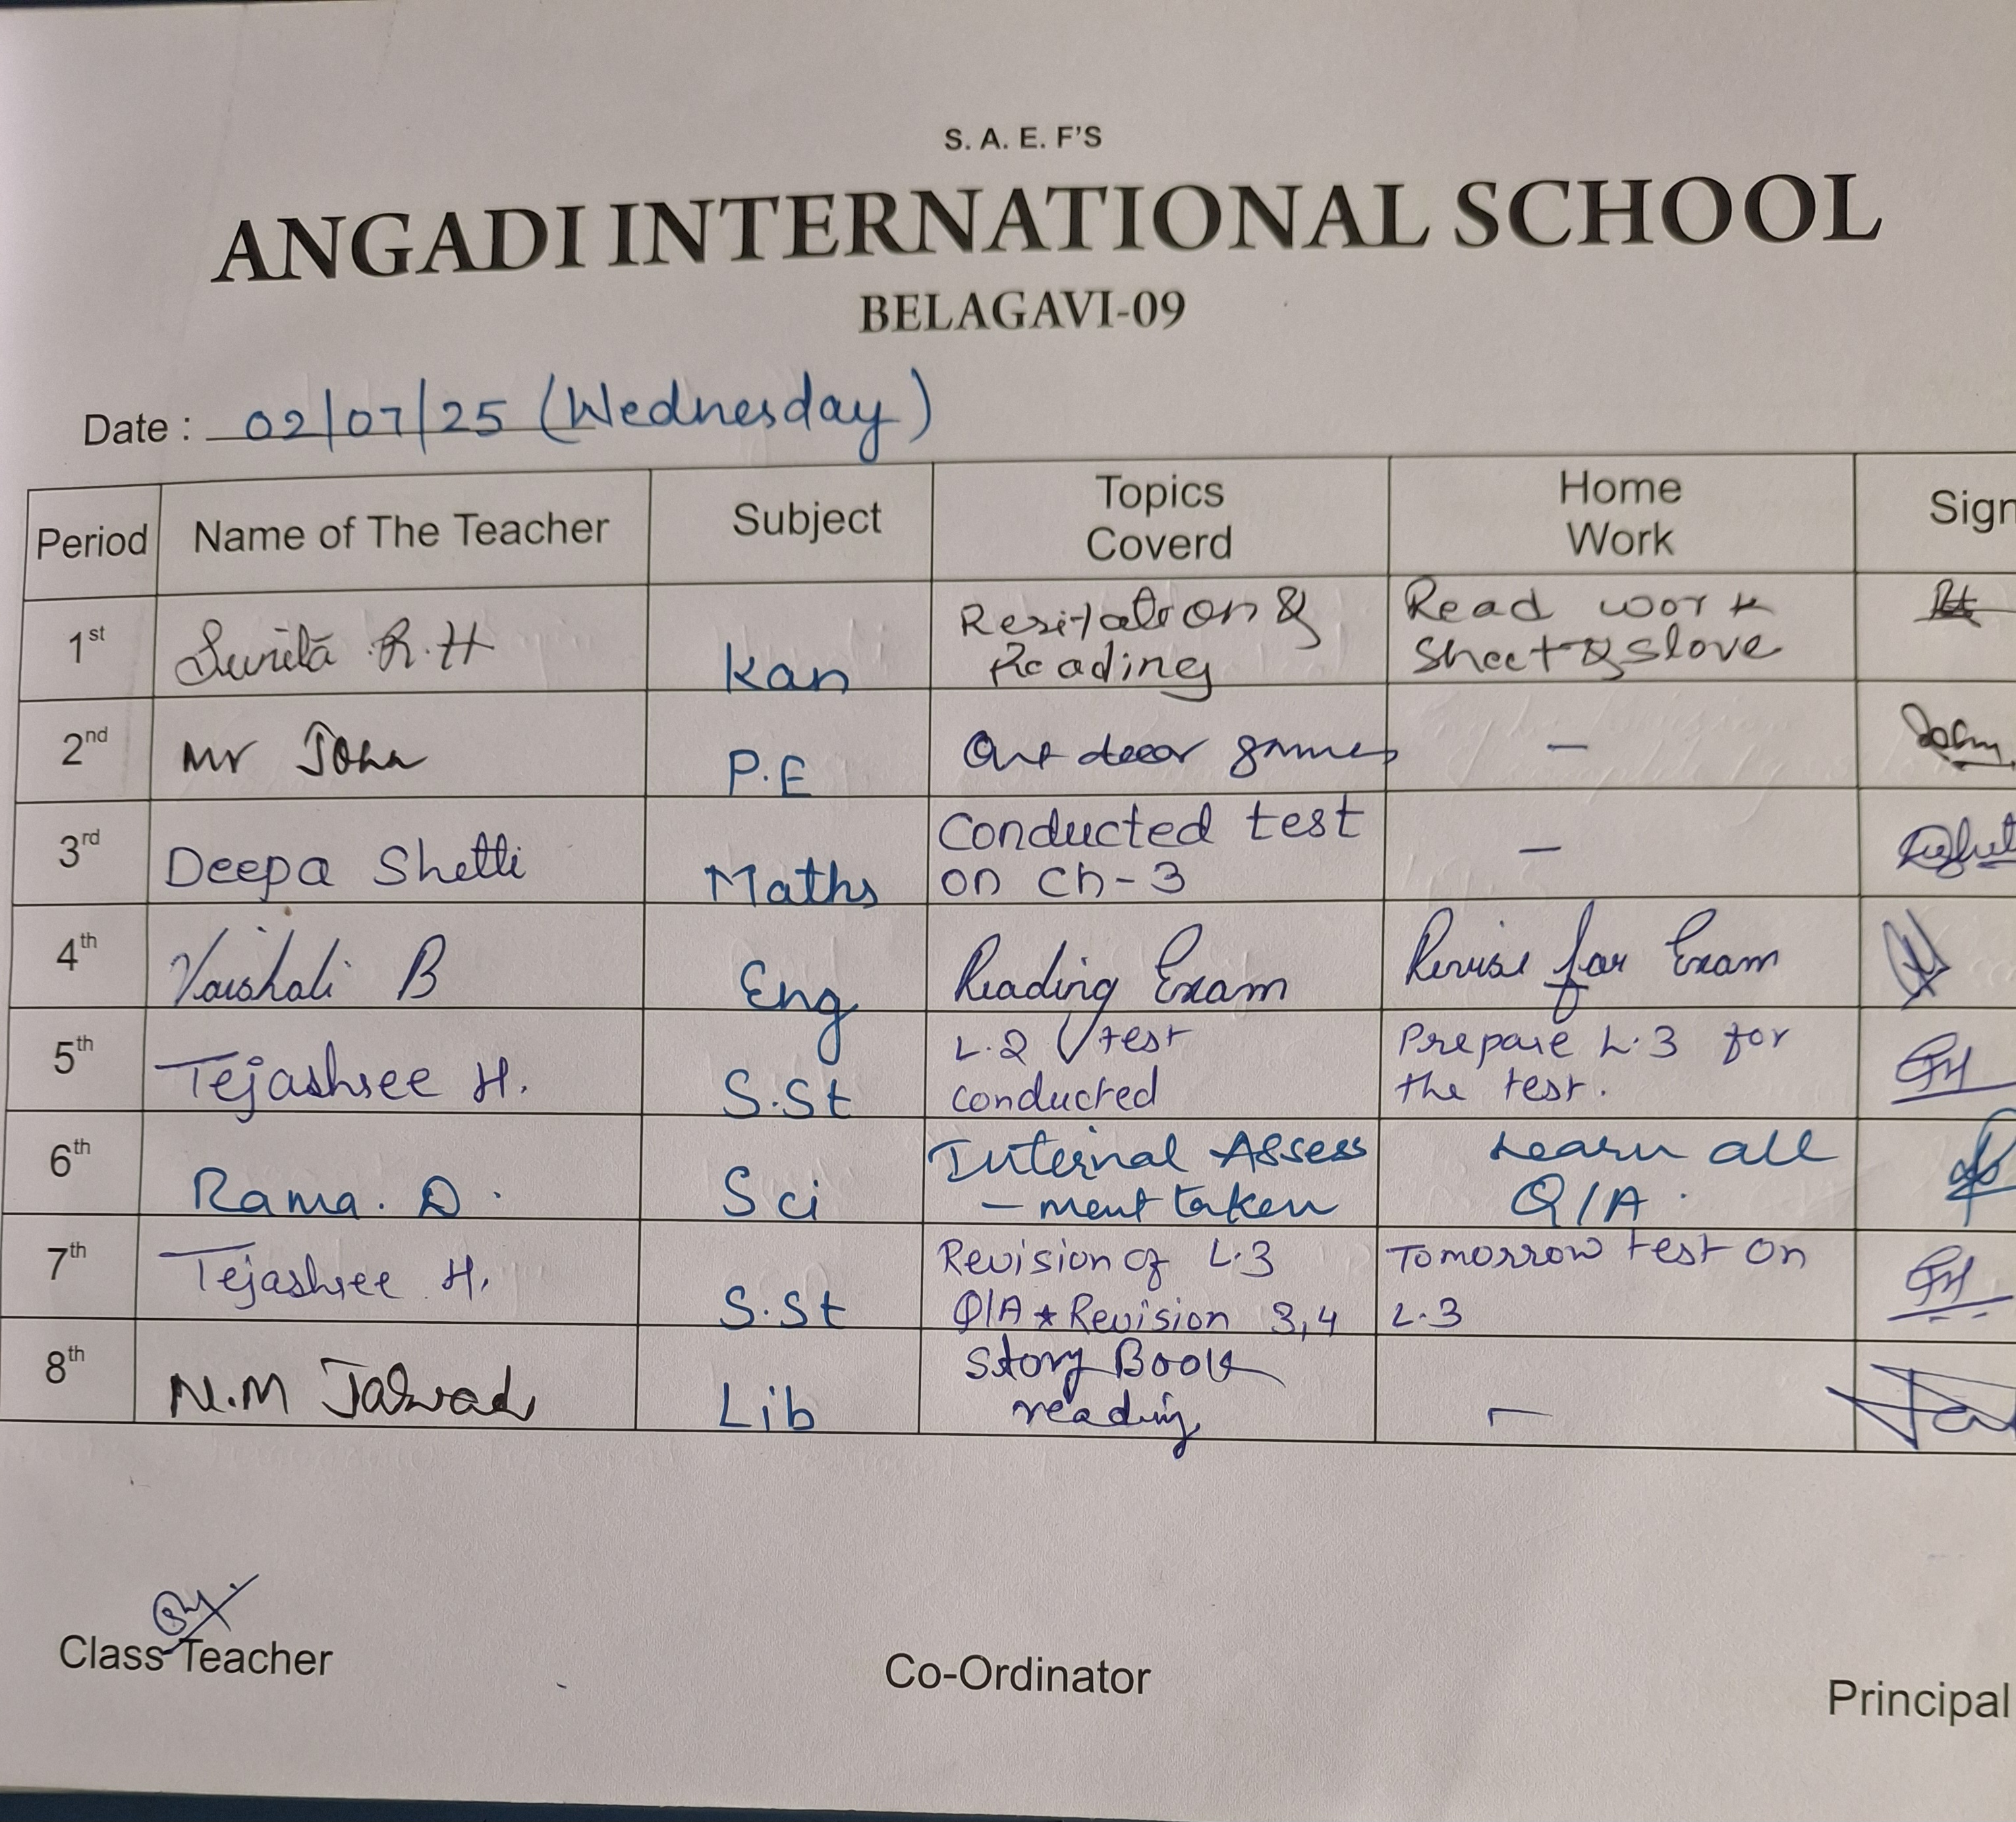 S. A. E. F'S
ANGADI INTERNATIONAL SCHOOL
BELAGAVI-09
Date : 02/07/25 (Wednesday)
Period Name of The Teacher Subject Topics Coverd Home Work Sign
1st Sunita R.H Kan Resitation & Reading Read work sheet & slove
2nd Mr John P.E Out door games — John
3rd Deepa Shetti Maths Conducted test on Ch-3 —
4th Vaishali B Eng Reading Exam Revise for Exam
5th Tejashree H. S.St L.2 test conducted Prepare L.3 for the test.
6th Rama. D. Sci Internal Assess - ment taken Learn all Q/A.
7th Tejashree H. S.St Revision of L.3 Q/A * Revision 3,4 Tomorrow test on L.3
8th N.M Lib Story Book reading —
Class Teacher
Co-Ordinator
Principal